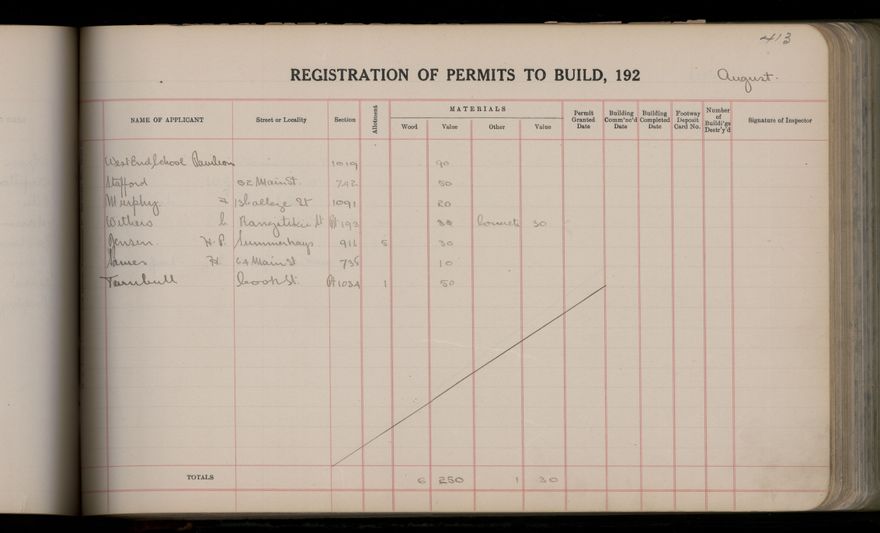 413
REGISTRATION OF PERMITS TO BUILD, 192
August.
MATERIALS
NAME OF APPLICANT Street or Locality Section Allotment Wood Value Other Value Permit Granted Date Building Comm'nc'd Date Building Completed Date Footway Deposit Card No. Number of Buildi'gs Destr'y'd Signature of Inspector
West End School Pavilion 1019 90
Stafford Main St. 742 50
Murphy College St 1091 20
Withers C Rangitikei St Pt 192 Concrete 30
Jensen H. P. Summerhays 911 5 30
James H. Main St 735 10
Turnbull Cook St. Pt 1034 1 50
TOTALS 6 250 1 30